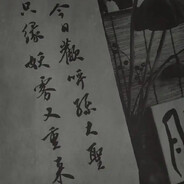 今日歡呼孫大聖
只緣妖霧又重來
月